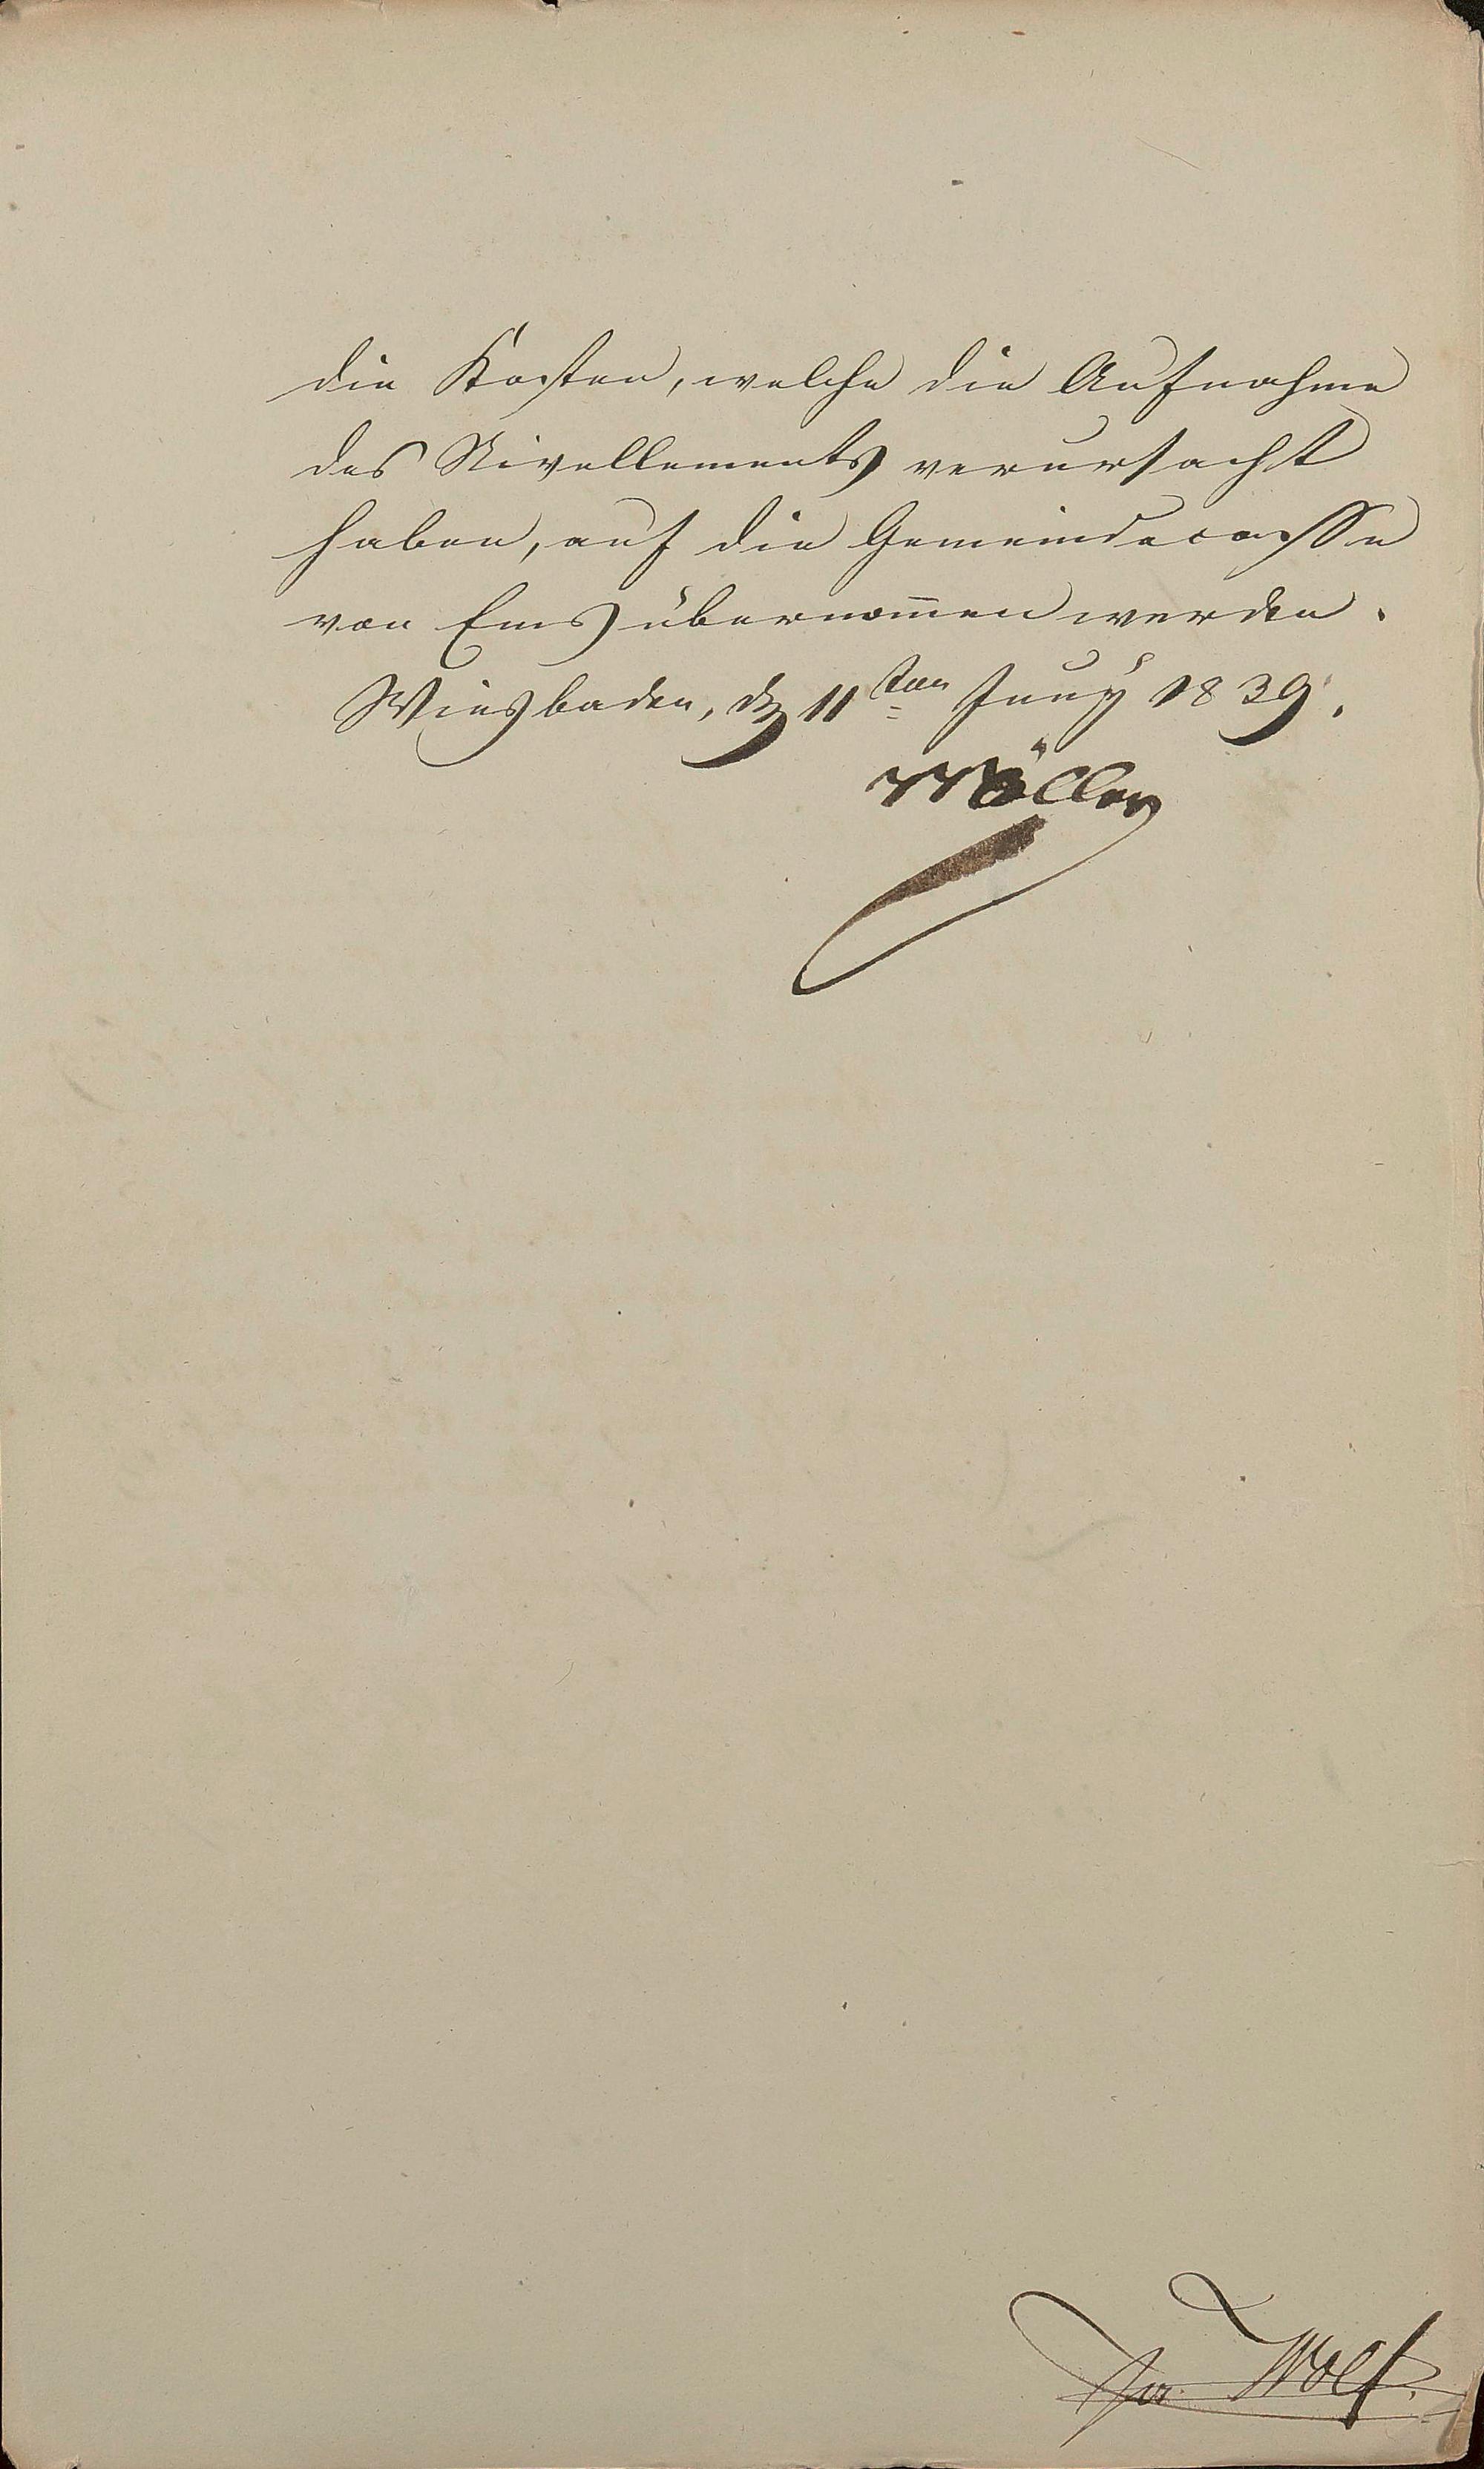 die Kosten, welche die Aufnahme
des Nivellements verursacht
haben, auf die Gemeindecasse
von Ems übernom̅en werden.
Wiesbaden, den 11ten Juny 1839.
Möller
Wolf.